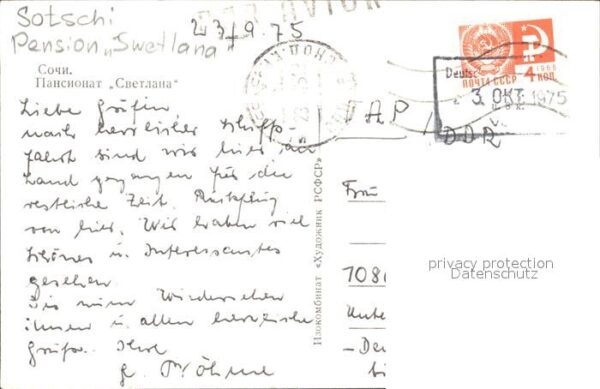 Sotschi
Pension „Swetlana"
PAR AVION
23/9.75
Сочи.
Пансионат „Светлана"
ПОЧТА СССР 4 КОП.
1966
Deutsc
3. ОКТ. 1975
ПАР /
DDR
Liebe Gräfin
nach herrlicher Schiff-
fahrt sind wir hier an
Land gegangen für die
restliche Zeit. Rückflug
von hier. Wir haben viel
Schönes u. Interessantes
gesehen.
Bis zum Wiedersehen
Ihnen u. allen herzliche
Grüße. Ihre
G. Möhne
Изокомбинат «Художник РСФСР»
Frau
1080
Unte
- De
privacy protection
Datenschutz